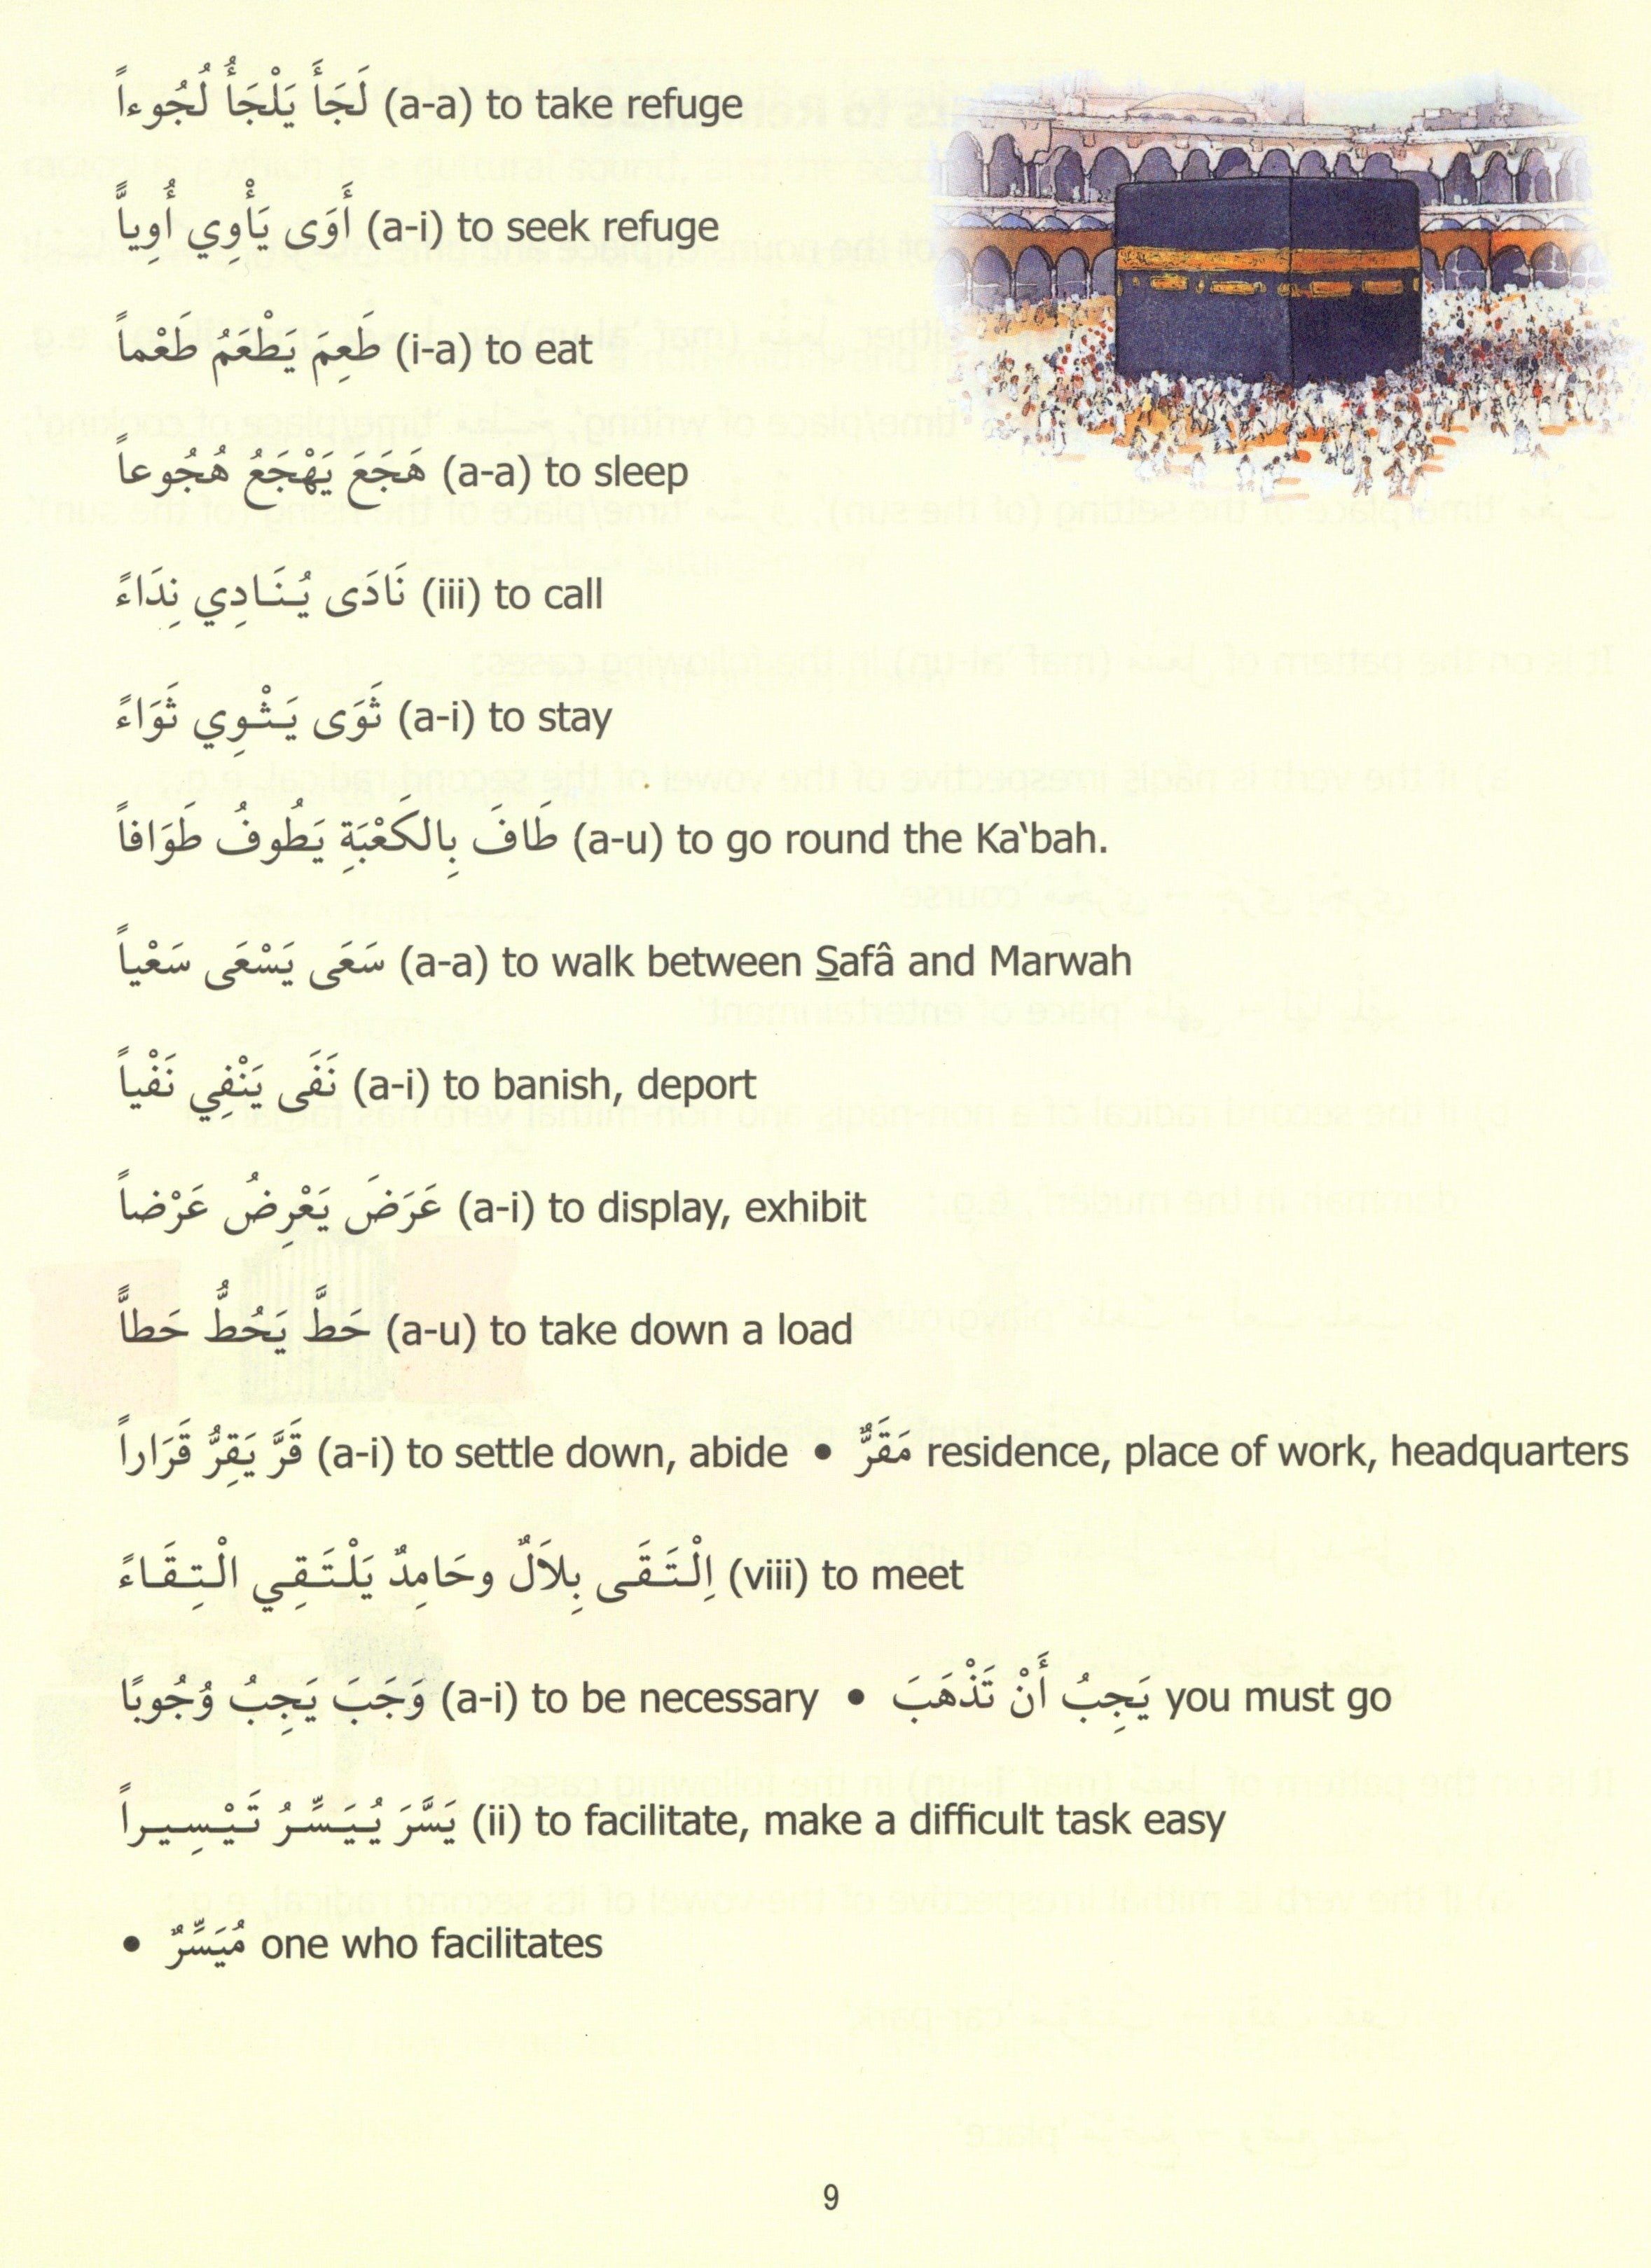 لَجَأَ يَلْجَأُ لُجُوءاً (a-a) to take refuge
أَوَى يَأْوِي أُوِياًّ (a-i) to seek refuge
طَعِمَ يَطْعَمُ طَعْماً (i-a) to eat
هَجَعَ يَهْجَعُ هُجُوعاً (a-a) to sleep
نَادَى يُنَادِي نِدَاءً (iii) to call
ثَوَى يَثْوِي ثَوَاءً (a-i) to stay
طَافَ بِالكَعْبَةِ يَطُوفُ طَوَافاً (a-u) to go round the Ka‛bah.
سَعَى يَسْعَى سَعْياً (a-a) to walk between Safâ and Marwah
نَفَى يَنْفِي نَفْياً (a-i) to banish, deport
عَرَضَ يَعْرِضُ عَرْضاً (a-i) to display, exhibit
حَطَّ يَحُطُّ حَطاًّ (a-u) to take down a load
قَرَّ يَقِرُّ قَرَاراً (a-i) to settle down, abide • مَقَرٌّ residence, place of work, headquarters
اِلْتَقَى بِلاَلٌ وحَامِدٌ يَلْتَقِي الْتِقَاءً (viii) to meet
وَجَبَ يَجِبُ وُجُوبًا (a-i) to be necessary • يَجِبُ أَنْ تَذْهَبَ you must go
يَسَّرَ يُيَسِّرُ تَيْسِيراً (ii) to facilitate, make a difficult task easy
• مُيَسِّرٌ one who facilitates
9